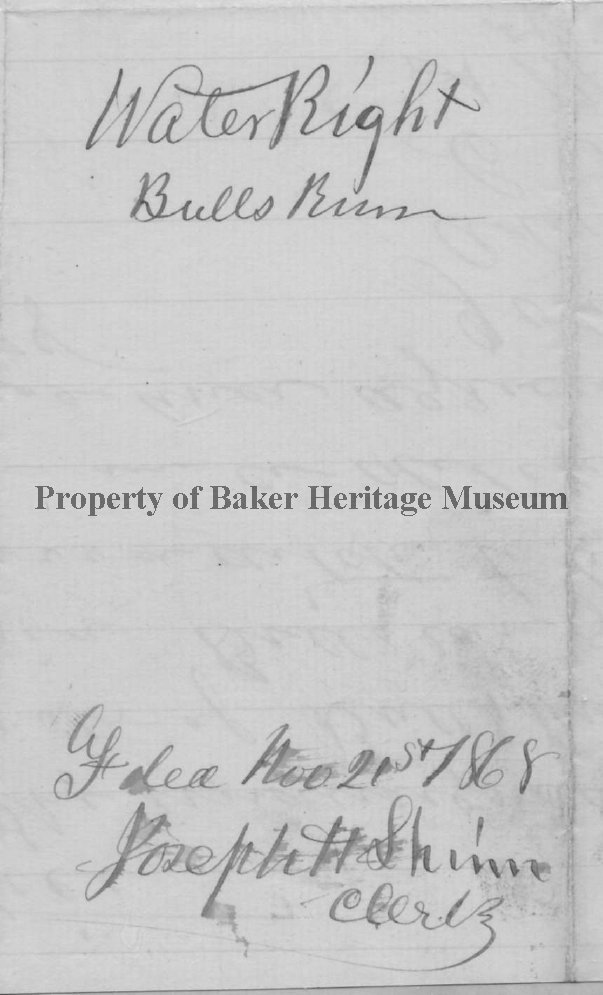 Water Right
Bulls Run
Property of Baker Heritage Museum
Filed Nov 21st 1868
Joseph H Shinn
Clerk